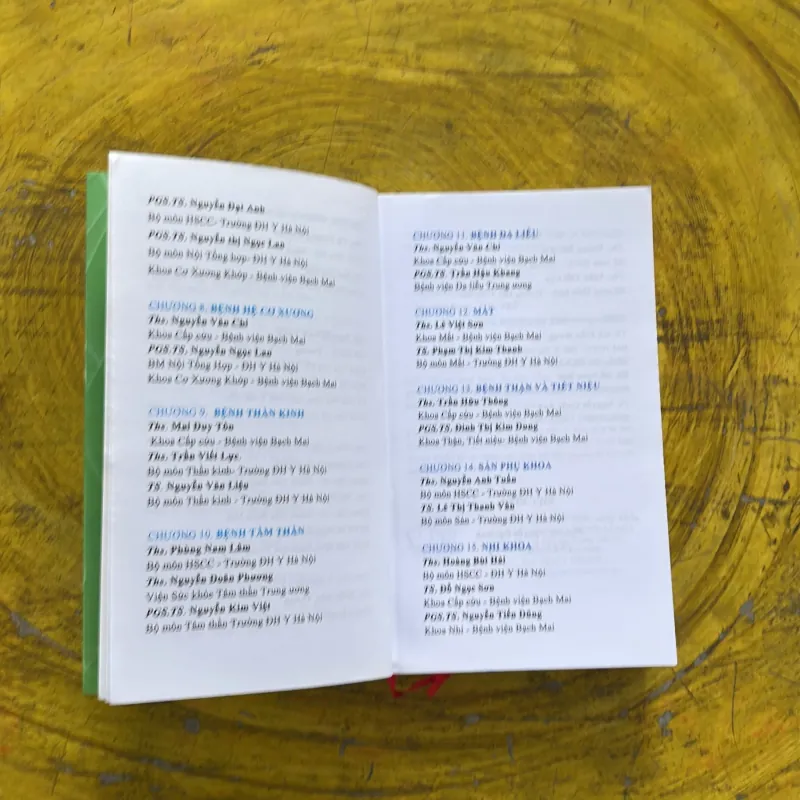 PGS.TS. Nguyễn Đạt Anh
Bộ môn HSCC- Trường ĐH Y Hà Nội
PGS.TS. Nguyễn thị Ngọc Lan
Bộ môn Nội Tổng hợp- ĐH Y Hà Nội
Khoa Cơ Xương Khớp - Bệnh viện Bạch Mai
CHƯƠNG 8. BỆNH HỆ CƠ XƯƠNG
Ths. Nguyễn Văn Chi
Khoa Cấp cứu - Bệnh viện Bạch Mai
PGS.TS. Nguyễn Ngọc Lan
BM Nội Tổng Hợp - ĐH Y Hà Nội
Khoa Cơ Xương Khớp - Bệnh viện Bạch Mai
CHƯƠNG 9. BỆNH THẦN KINH
Ths. Mai Duy Tôn
Khoa Cấp cứu - Bệnh viện Bạch Mai
Ths. Trần Viết Lực.
Bộ môn Thần kinh- Trường ĐH Y Hà Nội
TS. Nguyễn Văn Liệu
Bộ môn Thần kinh - Trường ĐH Y Hà Nội
CHƯƠNG 10. BỆNH TÂM THẦN
Ths. Phùng Nam Lâm
Bộ môn HSCC - Trường ĐH Y Hà Nội
Ths. Nguyễn Doãn Phương
Viện Sức khỏe Tâm thần Trung ương
PGS.TS. Nguyễn Kim Việt
Bộ môn Tâm thần Trường ĐH Y Hà Nội
CHƯƠNG 11. BỆNH DA LIỄU
Ths. Nguyễn Văn Chi
Khoa Cấp cứu - Bệnh viện Bạch Mai
PGS.TS. Trần Hậu Khang
Bệnh viện Da liễu Trung ương
CHƯƠNG 12. MẮT
Ths. Lê Việt Sơn
Khoa Mắt - Bệnh viện Bạch Mai
TS. Phạm Thị Kim Thanh
Bộ môn Mắt - Trường ĐH Y Hà Nội
CHƯƠNG 13. BỆNH THẬN VÀ TIẾT NIỆU
Ths. Trần Hữu Thông
Khoa Cấp cứu - Bệnh viện Bạch Mai
PGS.TS. Đinh Thị Kim Dung
Khoa Thận, Tiết niệu- Bệnh viện Bạch Mai
CHƯƠNG 14. SẢN PHỤ KHOA
Ths. Nguyễn Anh Tuấn
Bộ môn HSCC - Trường ĐH Y Hà Nội
TS. Lê Thị Thanh Vân
Bộ môn Sản - Trường ĐH Y Hà Nội
CHƯƠNG 15. NHI KHOA
Ths. Hoàng Bùi Hải
Bộ môn HSCC - ĐH Y Hà Nội
TS. Đỗ Ngọc Sơn
Khoa Cấp cứu - Bệnh viện Bạch Mai
PGS.TS. Nguyễn Tiến Dũng
Khoa Nhi - Bệnh viện Bạch Mai